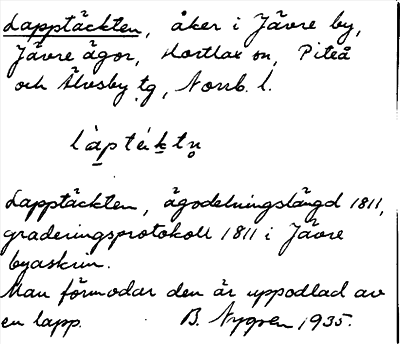 Lapptäckten, åker i Jävre by,
Jävre ägor, Hortlax sn, Piteå
och Älvsby tg, Norrb. l.
làptɛ́ktn̥
Lapptäckten, ägodelningslängd 1811,
graderingsprotokoll 1811 i Jävre
byaskrin.
Man förmodar den är uppodlad av
en lapp. B. Nygren 1935.